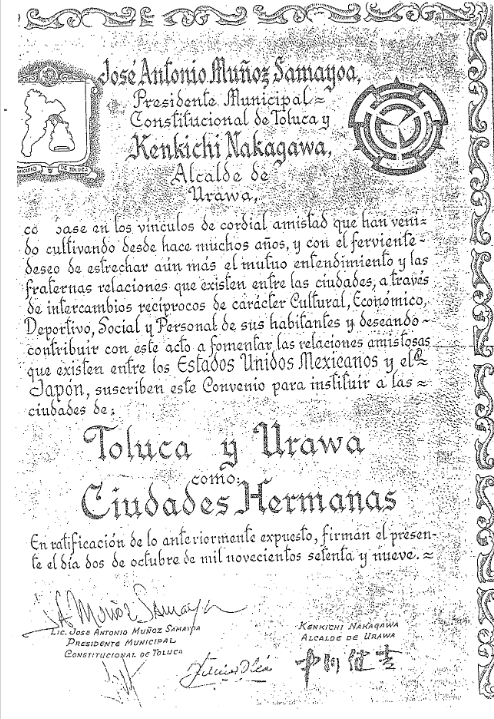 José Antonio Muñoz Samayoa,
Presidente Municipal =
Constitucional de Toluca y
Kenkichi Nakagawa,
Alcalde de
Urawa,
MUNICIPIO DE TOLUCA
base en los vinculos de cordial amistad que han veni=
do cultivando desde hace muchos años, y con el ferviente =
deseo de estrechar aún más el mutuo entendimiento y las
fraternas relaciones que existen entre las ciudades, a través
de intercambios recíprocos de carácter Cultural, Económico,
Deportivo, Social y Personal de sus habitantes y deseando =
contribuir con este acto a fomentar las relaciones amistosas
que existen entre los Estados Unidos Mexicanos y el =
Japón, suscriben este Convenio para instituir a las =
ciudades de:
Toluca y Urawa
como:
Ciudades Hermanas
En ratificación de lo anteriormente expuesto, firman el presen=
te el día dos de octubre de mil novecientos setenta y nueve. =
LIC. JOSE ANTONIO MUÑOZ SAMAYOA
PRESIDENTE MUNICIPAL
CONSTITUCIONAL DE TOLUCA
KENKICHI NAKAGAWA
ALCALDE DE URAWA
中川健吉